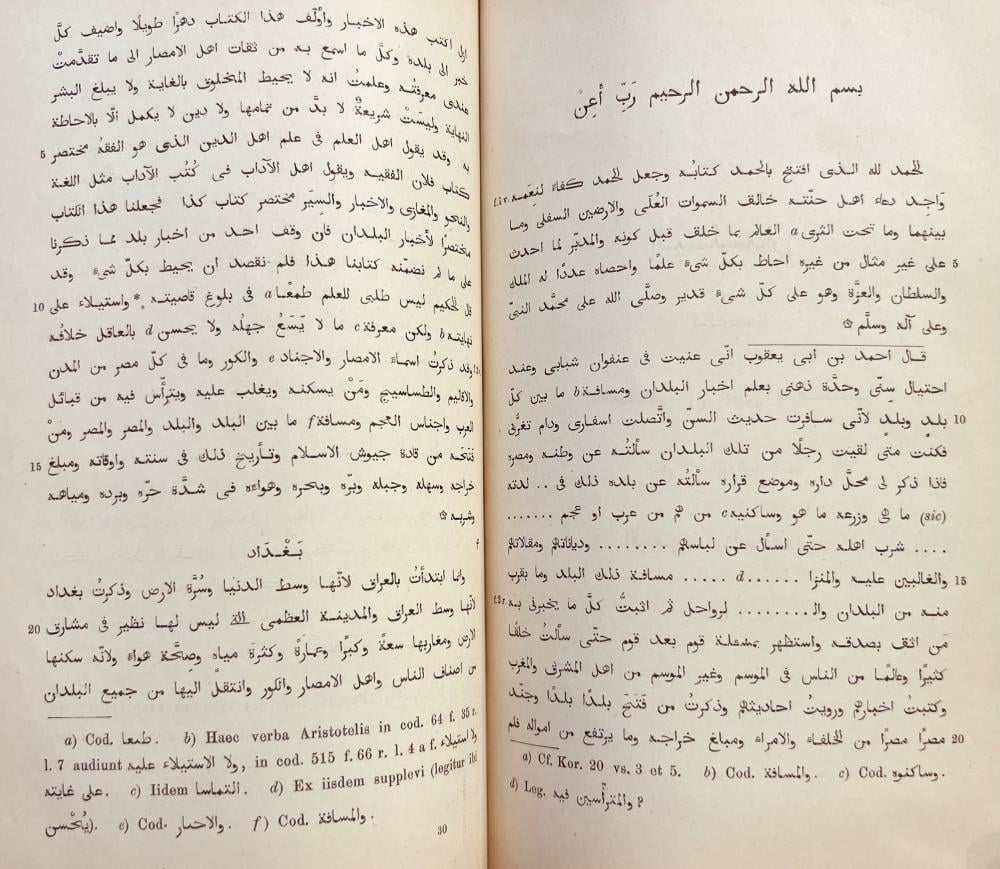 بسم الله الرحمن الرحيم رَبِّ أَعِنْ
الحمد لله الذى افتتح بالحمد كتابه وجعل الحمد كفاءً لنِعَمه f.1 v.
وآجد دعاء اهل جنّته خالق السموات العُلَى والارضين السفلى وما
بينهما وما تحت الثرى a العالم بما خلق قبل كونه والمدبّر لما احدث
5 على غير مثال من غيره احاط بكلّ شىء علمًا واحصاه عددًا له الملك
والسلطان والعزّة وهو على كلّ شىء قدير وصلّى الله على محمّد النبىّ
وعلى آله وسلّم ۞
قال احمد بن ابى يعقوب انّى عنيت فى عنفوان شبابى وعند
احتيال سنّى وحدّة ذهنى بعلم اخبار البلدان ومسافة b ما بين كلّ
10 بلدٍ وبلدٍ لأنّى سافرت حديث السنّ واتّصلت اسفارى ودام تغرّبى
فكنت متى لقيت رجلًا من تلك البلدان سألتُه عن وطنه ومصره
فاذا ذكر لى محلّ داره وموضع قراره سألتُه عن بلده ذلك فى .. لدته
(sic) ما هى وزرعه ما هو وساكنيه c من هم من عرب او عجم .......
.... شرب اهله حتّى اسأل عن لباسهم ........ ودياناتهم ومقالاتهم
15 والغالبين عليه والمنزا ....... d ..... مسافة ذلك البلد وما بقرب
منه من البلدان وال........ لرواحل ثم اثبتُّ كلّ ما يخبرنى به f.2 r.
مَن اثق بصدقه واستظهر بمسئلة قوم بعد قوم حتّى سألتُ خلقًا
كثيرًا وعالمًا من الناس فى الموسم وغير الموسم من اهل المشرق والمغرب
وكتبتُ اخبارهم ورويتُ احاديثهم وذكرت من فَتَحَ بلدًا بلدًا وجنّد
20 مصرًا مصرًا من الخلفاء والامراء ومبلغ خراجه وما يرتفع من امواله فلم
a) Cf. Kor. 20 vs. 3 et 5. b) Cod. والمسافة. c) Cod. وساكنوه.
d) Leg. والمترأّسين فيه?
ازل اكتب هذه الاخبار وأولّف هذا الكتاب دهرًا طويلًا واضيف كلَّ
خبر الى بلده وكلَّ ما اسمع به من ثقات اهل الامصار الى ما تقدّمتْ
عندى معرفتُه وعلمتُ انه لا يحيط المخلوق بالغاية ولا يبلغ البشر
النهاية وليستْ شريعةٌ لا بدَّ من تمامها ولا دين لا يكمل الّا بالاحاطة
5 به وقد يقول اهل العلم فى علم اهل الدين الذى هو الفقهُ مختصر
كتاب فلان الفقيه ويقول اهل الآداب فى كُتُب الآداب مثل اللغة
والنحو والمغازى والاخبار والسيَر مختصر كتاب كذا فجعلنا هذا الكتاب
مختصرًا لأخبار البلدان فان وقف احد من اخبار بلد ممّا ذكرنا
على ما لم نضمّنه كتابنا هذا فلم نقصد ان يحيط بكلّ شىء وقد
10 قال الحكيم ليس طلبى للعلم طمعًا a فى بلوغ قاصيته *واستيلاء على
نهايته b ولكن معرفة c ما لا يَسَعُ جهلُه ولا يحسن d بالعاقل خلافُه
وقد ذكرتُ اسماء الامصار والاجناد e والكور وما فى كلّ مصر من المدن
والاقاليم والطساسيج ومَنْ يسكنه ويغلب عليه ويترأّس فيه من قبائل
العرب واجناس العجم ومسافة f ما بين البلد والبلد والمصر والمصر ومَنْ
15 فتحه من قادة جيوش الاسلام وتأريخ ذلك فى سنته واوقاته ومبلغ
خراجه وسهله وجبله وبرّه وبحره وهواءه فى شدّة حرّه وبرده ومياهه
وشربه ۞
بَغْدَاد f
وانّما ابتدأتُ بالعراق لأنّها وسط الدنيا وسُرَّة الارض وذكرتُ بغداد
20 لأنّها وسط العراق والمدينة العظمى التى ليس لها نظير فى مشارق
الارض ومغاربها سعةً وكبرًا وعمارةً وكثرة مياه وصحّة هواء ولانّه سكنها
من اصناف الناس واهل الامصار والكور وانتقل اليها من جميع البلدان
a) Cod. طمعا. b) Haec verba Aristotelis in cod. 64 f. 35 r.
l. 7 audiunt ولا الاستيلاء عليه, in cod. 515 f. 66 r. l. 4 a f. ولا استيلاء
على غايته. c) Iidem التماسا. d) Ex iisdem supplevi (legitur ibi
يُحْسن). e) Cod. والاحبار. f) Cod. والمسافة.
30